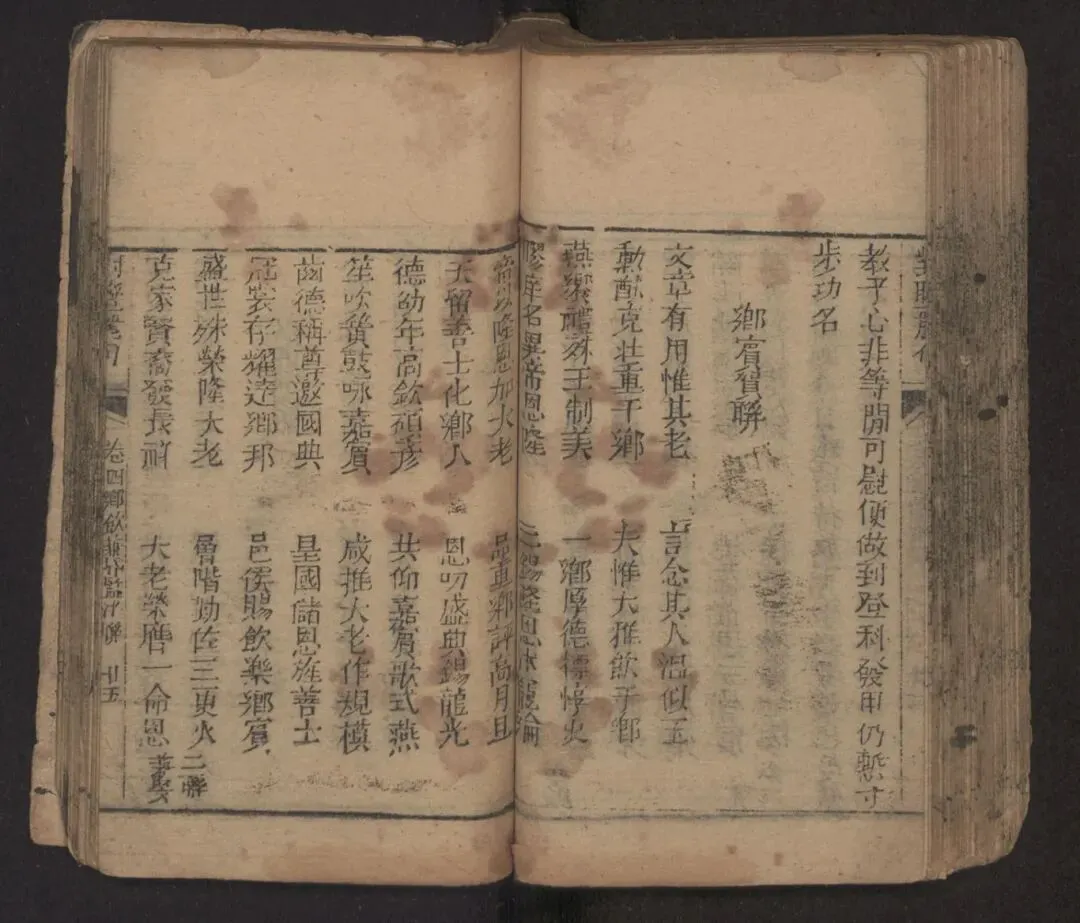 教子心非等閒可慰便做到登科發甲仍慙寸
步功名
鄉賓賀聯
文章有用惟其老 言念其人溫似玉
動猷克壯重于鄉 夫惟大雅飲于鄉
燕樂禮殊王制美 一鄉厚德
恩隆
隆恩加大老 品重鄉評高月旦
天留善士化鄉人 恩叨盛典錫龍光
德劭年高欽碩彥 共仰嘉賓歌式燕
笙吹簧鼓咏嘉賓 咸推大老作規模
齒德稱尊邀國典 皇國儲恩旌善士
冠裳存耀達鄉邦 邑侯賜飲樂鄉賓
盛世殊榮隆大老 層階勤佐三更火 二聯
克家賢裔發長祥 大老榮膺一命恩
卷四鄉飲 聯 廿五